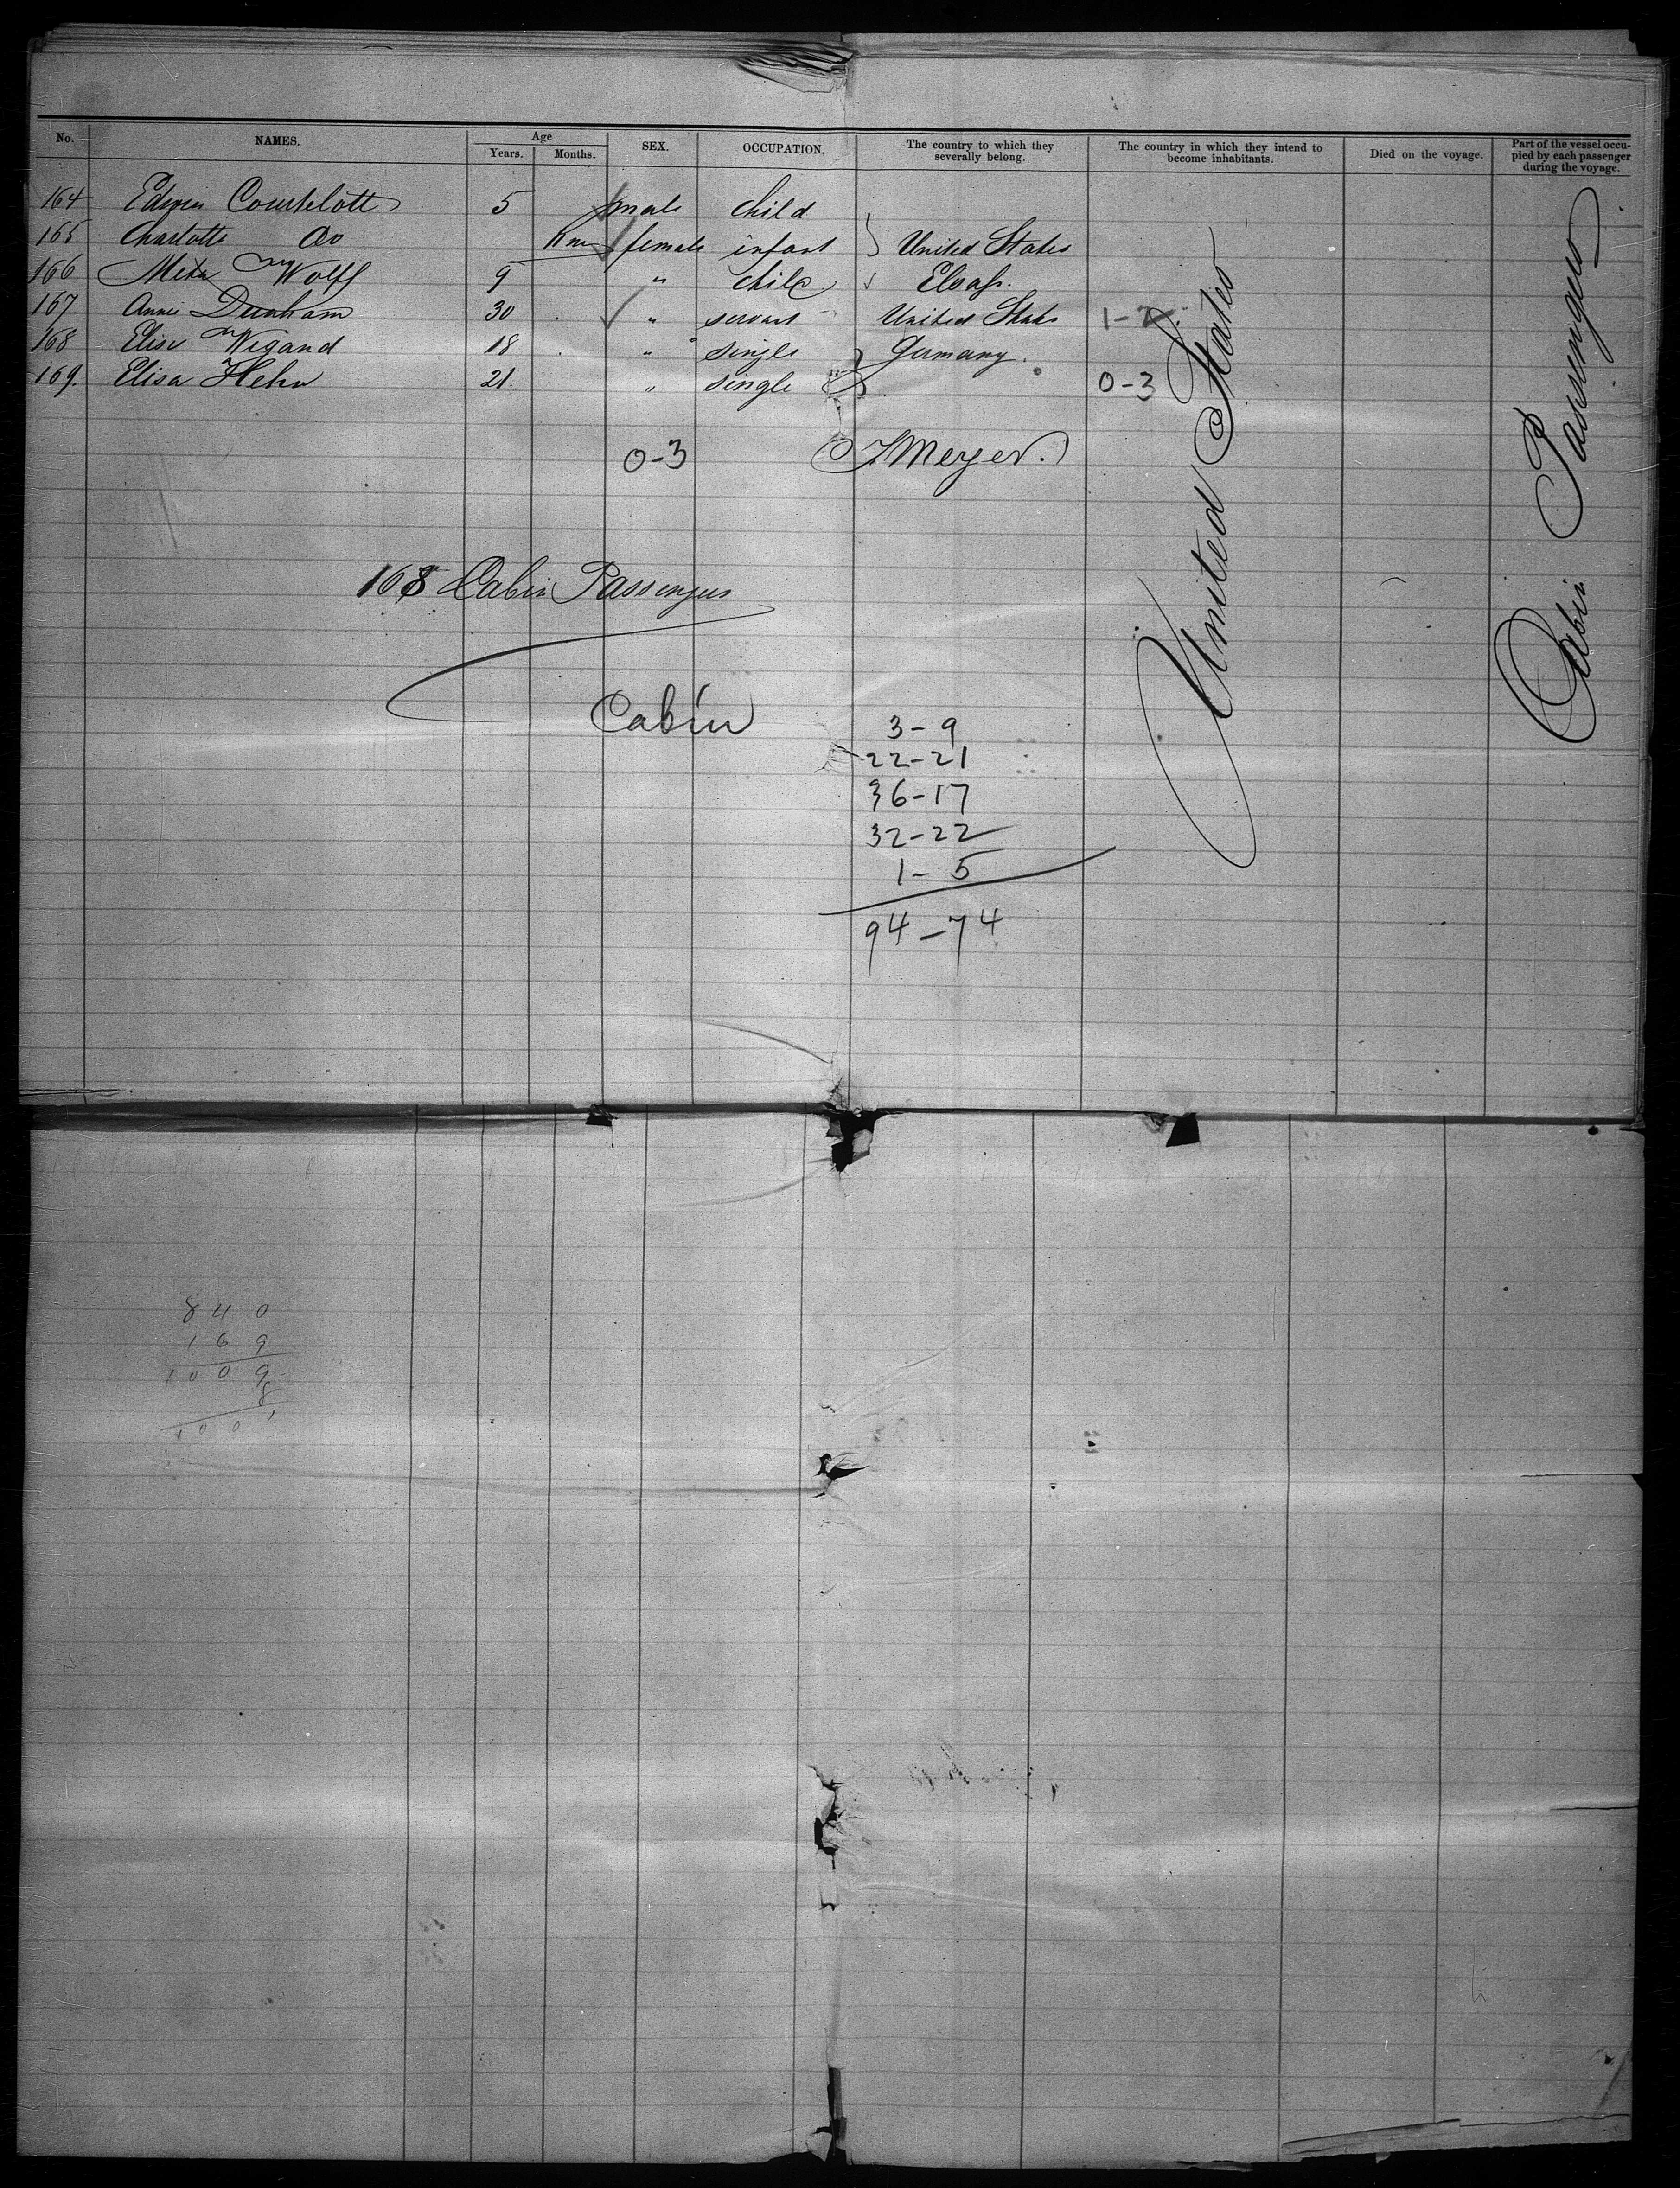 No. NAMES. Age Years. Months. SEX. OCCUPATION. The country to which they severally belong. The country in which they intend to become inhabitants. Died on the voyage. Part of the vessel occupied by each passenger during the voyage.
164 5 male child
165 Charlotte do female infant United States
166 Wolff 9 " child
167 Annie Dunham 30 " servant United States 1-2
168 Elise Wegand 18 " single Germany.
169. Elisa Hehn 21. " single 0-3
0-3 Meyer.
United States
Cabin Passengers
168 Cabin Passengers
Cabin
3-9
22-21
36-17
32-22
1-5
94-74
840
169
1009
8
1001